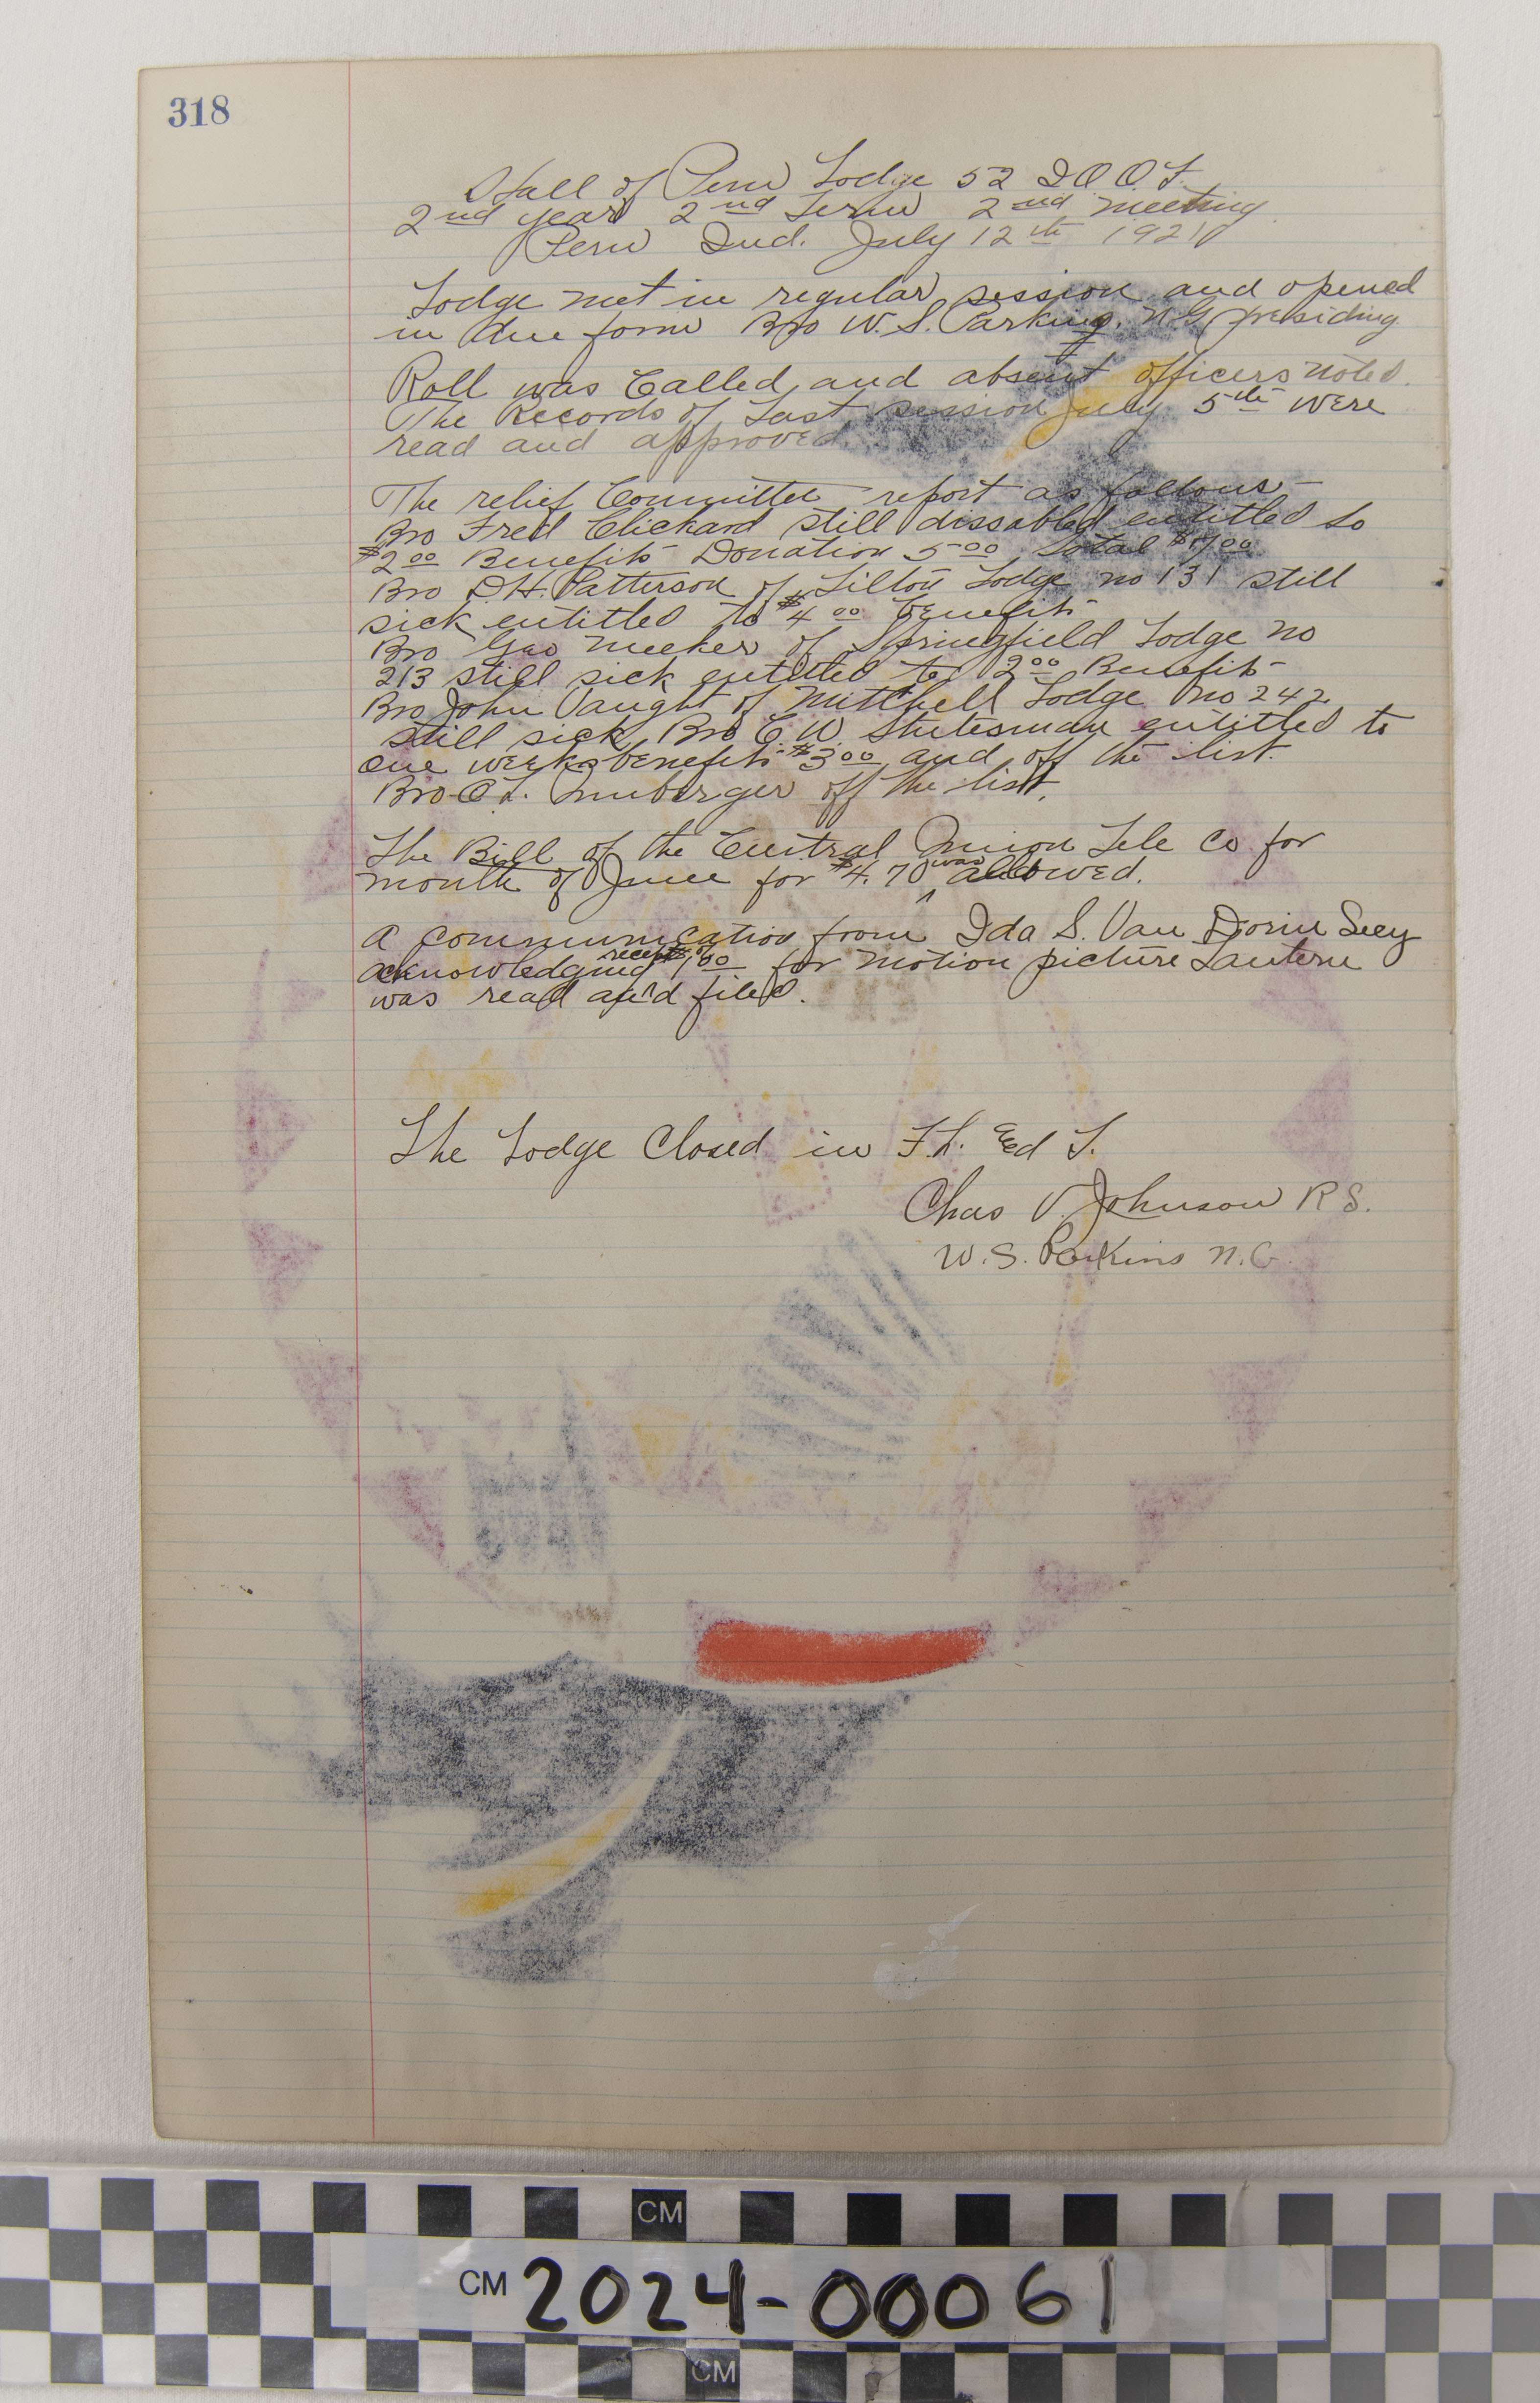 318
Hall of Peru Lodge 52 I O O F.
2nd year 2nd Term 2nd meeting.
Peru Ind. July 12th 1921
Lodge met in regular session and opened
in due form Bro W. S. Parkins, N G presiding
Roll was Called, and absent officers noted.
The Records of Last session July 5th were
read and approved
The relief Committee report as follows-
Bro Fred Clickard still dissabled entitled to
$2.00 Benefits Donation 5.00 Total $7.00
Bro D. H. Patterson of Tilton Lodge no 131 still
sick entitled to $4.00 benefits
Bro Geo Meeker of Springfield Lodge no
213 still sick entitled to 2.00 Benefits
Bro John Vaught of Mitchell Lodge no 242
still sick, Bro C W Stutesman entitled to
one weeks benefits $3.00 and off the list.
Bro C L. off the list.
The Bill of the Central Union Tele Co for
month of June for $4.70 was allowed.
A communication from Ida S. Van Dorin Secy
acknowledging receipt of $1.00 for motion picture Lantern
was read and filed.
The Lodge Closed in F. L. and T.
Chas V. Johnson R S.
W. S. Parkins N. G.
CM
CM 2024-00061
CM